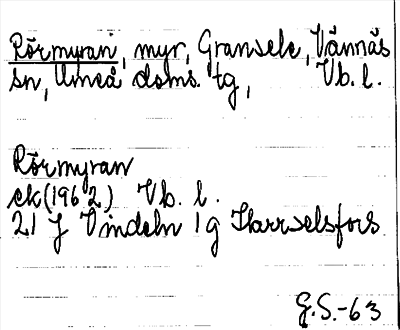 Rörmyran, myr, Gransele, Vännäs
sn, Umeå doms. tg, Vb. l.
Rörmyran
ek(1962) Vb. l.
21 J Vindeln 1g Harrselsfors
G.S.-63